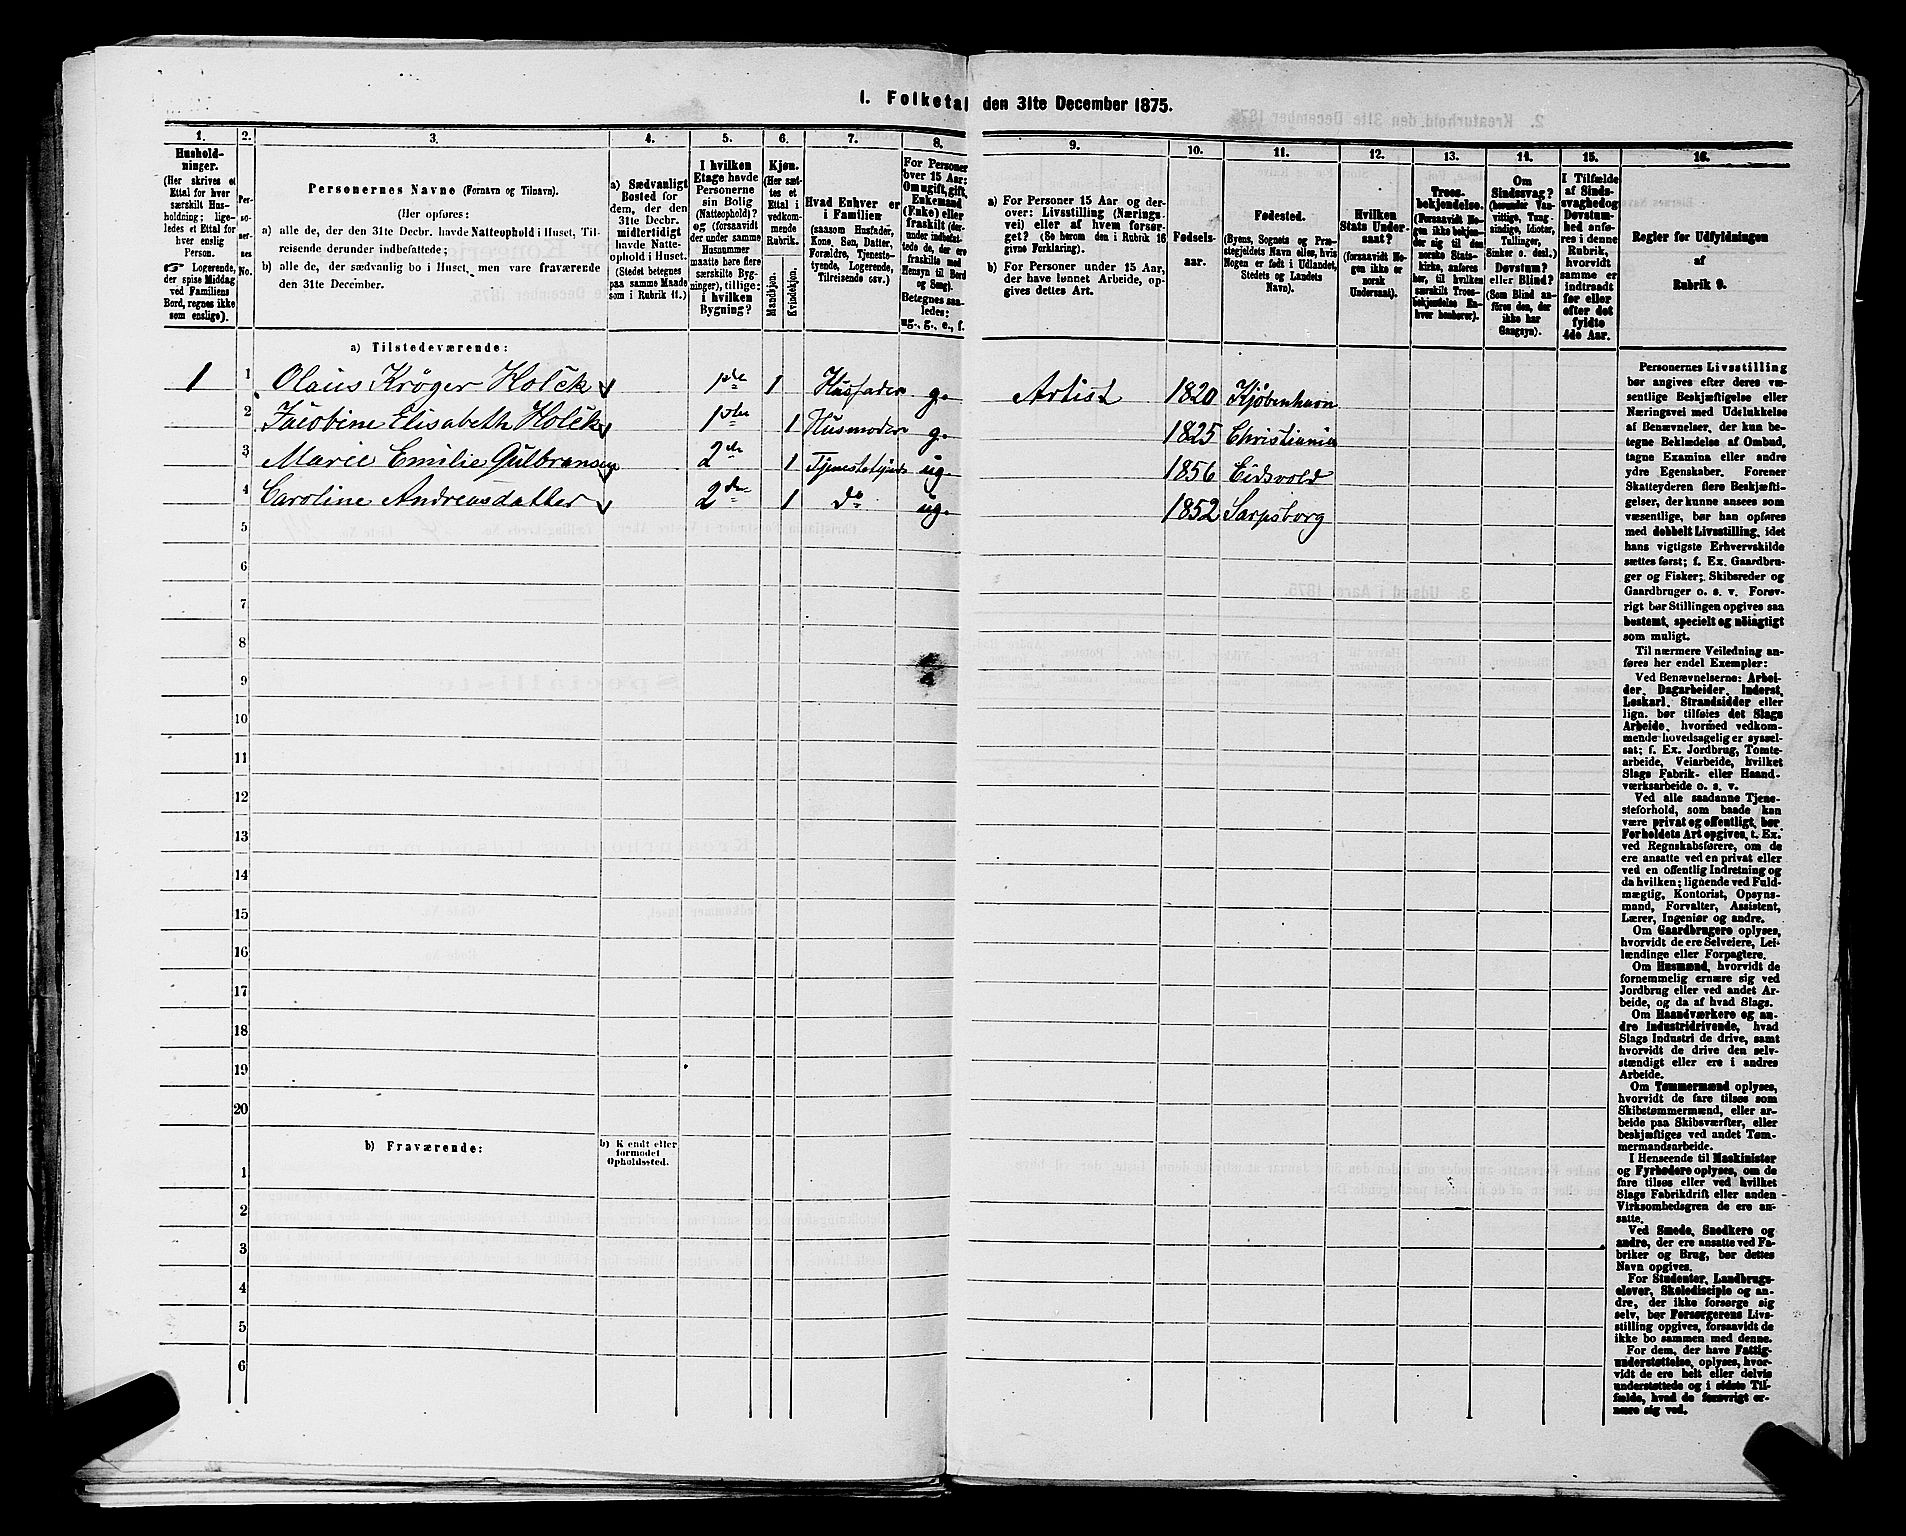 1. Folketal den 31te December 1875.
1.
Hushold-
ninger.
(Her skrives et
Ettal for hver
særskilt Hus-
holdning; lige-
ledes et Ettal for
hver enslig
Person.
☞ Logerende,
der spise Middag
ved Familiens
Bord, regnes ikke
som enslige).
2.
Per-
so-
ner-
nes
No.
3.
Personernes Navne (Fornavn og Tilnavn).
(Her opføres:
a) alle de, der den 31te Decbr. havde Natteophold i Huset, Til-
reisende derunder indbefattede;
b) alle de, der sædvanlig bo i Huset, men vare fraværende
den 31te December.
4.
a) Sædvanligt
Bosted for
dem, der den
31te Decbr.
midlertidigt
havde Natte-
ophold i Huset.
(Stedet betegnes
paa samme Maade
som i Rubrik 11.)
5.
I hvilken
Etage havde
Personerne
sin Bolig
(Natteophold)?
og (forsaavidt
der under samme
Husnummer
maatte høre flere
særskilte Byg-
ninger), tillige:
i hvilken
Bygning?
6.
Kjøn.
(Her sæt-
tes et
Ettal i
vedkom-
mende
Rubrik.
Mandkjøn.
Kvindekjøn.)
7.
Hvad Enhver er
i Familien
(saasom Husfader,
Kone, Søn, Datter,
Forældre, Tjeneste-
tyende, Logerende,
Tilreisende osv.)
8.
For Personer
over 15 Aar:
Om ugift, gift,
Enkemand
(Enke) eller
fraskilt (der-
under indbefat-
tede de, der ere
fraskilte med
Hensyn til Bord
og Seng).
Betegnes saa-
ledes:
ug., g., e., f.
9.
a) For Personer 15 Aar og der-
over: Livsstilling (Nærings-
vei) eller af hvem forsør-
get? (Se herom den i Rubrik 16
givne Forklaring).
b) For Personer under 15 Aar,
der have lønnet Arbeide, op-
gives dettes Art.
10.
Fødsels-
aar.
11.
Fødested.
(Byens, Sognets og Præ-
stegjeldets Navn eller, hvis
Nogen er født i Udlandet,
Stedets og Landets
Navn).
12.
Hvilken
Stats Under-
saat?
(forsaavidt No-
gen ikke er
norsk
Undersaat).
13.
Troes-
bekjendelse.
(Forsaavidt No-
gen ikke bekjen-
der sig til den
norske Stats-
kirke, anføres
her, til hvilken
særskilt Troes-
bekjendelse En-
hver henhører).
14.
Om
Sindssvag?
(herunder Van-
vittige, Tung-
sindige, Idioter,
Tullinger,
Sinker o. desl.)
Døvstum?
eller Blind?
(Som Blind an-
føres den, der
ikke har
Gangsyn).
15.
I Tilfælde
af Sinds-
svaghed og
Døvstum-
hed anfø-
res i denne
Rubrik,
hvorvidt
samme er
indtraadt
før eller
efter det
fyldte
4de Aar.
16.
Regler for Udfyldningen
af
Rubrik 9.
a) Tilstedeværende:
1 1 Olaus Krøger Holck 1de 1 Husfader g. Artist 1820 Kjøbenhavn
2 Jacobine Elisabeth Holck 1ste 1 Husmoder g. 1825 Christiania
3 Marie Emilie Gulbransen 2de 1 Tjenestetyende ug. 1856 Eidsvold
4 Caroline Andreasdatter 2de 1 do ug. 1852 Sarpsborg
5
6
7
8
9
10
11
12
13
14
15
16
17
18
19
20
b) Fraværende:
b) Kjendt eller
formodet
Opholdssted.
1
2
3
4
5
6
Personernes Livsstilling
bør angives efter deres væ-
sentlige Beskjæftigelse eller
Næringsvei med Udelukkelse
af Benævnelser, der kun be-
tegne Beklædelse af Ombud,
tagne Examina eller andre
ydre Egenskaber. Forener
Skatteyderen flere Beskjæfti-
gelser, der kunne ansees som
væsentlige, bør han opføres
med dobbelt Livsstilling, idet
hans vigtigste Erhvervskilde
sættes først; f. Ex. Gaardbru-
ger og Fisker; Skibsreder og
Gaardbruger o. s. v. Forøv-
rigt bør Stillingen opgives saa
bestemt, specielt og nøiagtigt
som muligt.
Til nærmere Veiledning an-
føres her endel Exempler:
Ved Benævnelserne: Arbei-
der, Dagarbeider, Inderst,
Løskarl, Strandsidder eller
lign. bør tilføies det Slags
Arbeide, hvormed vedkom-
mende hovedsagelig er syssel-
sat; f. Ex. Jordbrug, Tomte-
arbeide, Veiarbeide, hvilket
Slags Fabrik- eller Haand-
værksarbeide o. s. v.
Ved alle saadanne Tjene-
steforhold, som baade kan
være privat og offentligt, bør
Forholdets Art opgives, t. Ex.
ved Regnskabsførere, om de
ere ansatte ved en privat eller
ved en offentlig Indretning og
da hvilken; lignende ved Fuld-
mægtig, Kontorist, Opsyns-
mand, Forvalter, Assistent,
Lærer, Ingeniør og andre.
Om Gaardbrugere oplyses,
hvorvidt de ere Selveiere, Lei-
lændinge eller Forpagtere.
Om Husmænd, hvorvidt de
fornemmelig ernære sig ved
Jordbrug eller ved andet Ar-
beide, og da af hvad Slags.
Om Haandværkere og an-
dre Industridrivende, hvad
Slags Industri de drive, samt
hvorvidt de drive den selv-
stændigt eller ere i andres
Arbeide.
Om Tømmermænd oplyses,
hvorvidt de fare tilsøs som
Skibstømmermænd, eller ar-
beide paa Skibsværfter, eller
beskjæftiges ved andet Tøm-
mermandsarbeide.
I Henseende til Maskinister
og Fyrbødere oplyses, om de
fare tilsøs eller ved hvilket
Slags Fabrikdrift eller anden
Virksomhedsgren de ere an-
satte.
Ved Smede, Snedkere og
andre, der ere ansatte ved Fa-
briker og Brug, bør dettes
Navn opgives.
For Studenter, Landbrugs-
elever, Skoledisciple og an-
dre, der ikke forsørge sig
selv, bør Forsørgerens Livs-
stilling opgives, forsaavidt de
ikke bo sammen med denne.
For dem, der have Fattig-
understøttelse, oplyses, hvor-
vidt de ere helt eller delvis
understøttede og i sidste Til-
fælde, hvad de forøvrigt er-
nære sig ved.